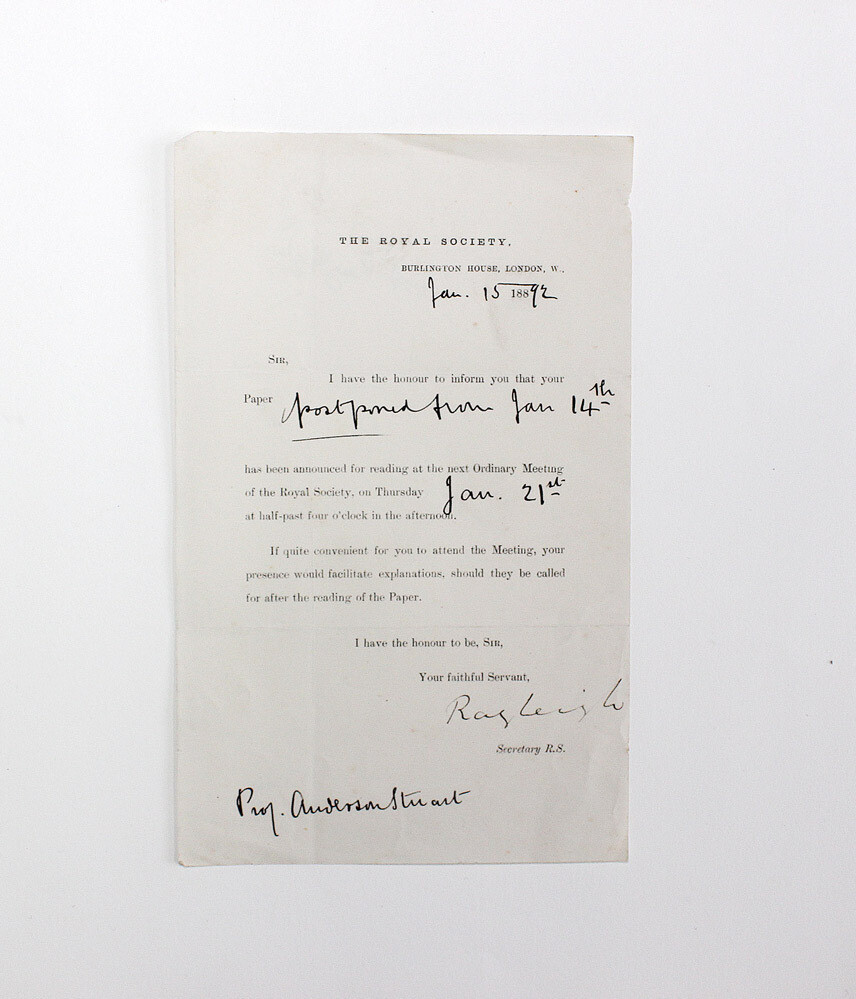 THE ROYAL SOCIETY,
BURLINGTON HOUSE, LONDON, W.,
Jan. 15 1892
SIR,
I have the honour to inform you that your
Paper postponed from Jan 14th
has been announced for reading at the next Ordinary Meeting
of the Royal Society, on Thursday Jan. 21st
at half-past four o'clock in the afternoon.
If quite convenient for you to attend the Meeting, your
presence would facilitate explanations, should they be called
for after the reading of the Paper.
I have the honour to be, SIR,
Your faithful Servant,
Rayleigh
Secretary R.S.
Prof. Anderson Stuart